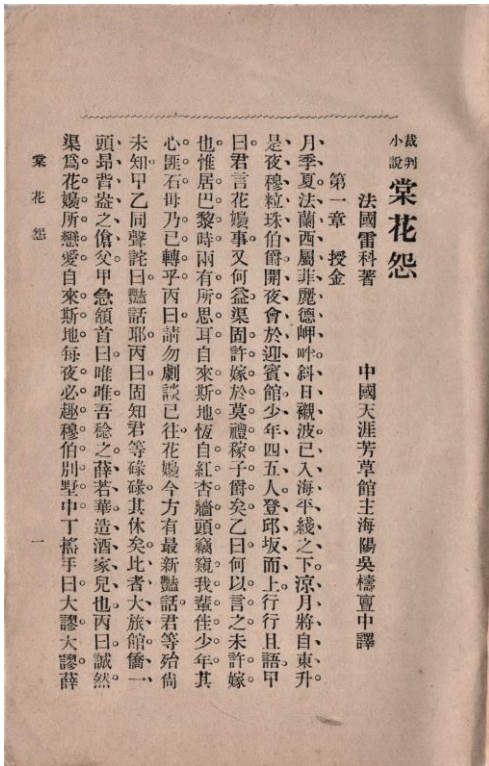 裁判小說 棠花怨
法國雷科著 中國天涯芳草館主海陽吳檮亶中譯
第一章 授金
月、季夏、法蘭西屬菲麗德岬畔、斜日襯波、已入海平綫之下、涼月將自東升、
是夜穆粒珠伯爵開夜會於迎賓館、少年四五人、登邱坂而上、行行且語、甲
曰、君言花孃事又何益、渠固許嫁於莫禮稼子爵矣、乙曰、何以言之、未許嫁
也、惟居巴黎時兩有所思耳、自來斯地、恆自紅杏牆頭、竊窺我輩佳少年、其
心匪石、毋乃已轉乎、丙曰、請勿劇談已往、花孃今方有最新豔話、君等殆尙
未知、甲乙同聲詫曰、豔話耶、丙曰、固知君等碌碌、其休矣、比者大旅館僑一
頭昂背盎之傖父、甲急頷首曰、唯唯、吾稔之、薛若華造酒家兒也、丙曰、誠然、
渠爲花孃所戀愛、自來斯地、每夜必趣穆伯別墅中、丁搖手曰、大謬大謬、薛
棠花怨 一